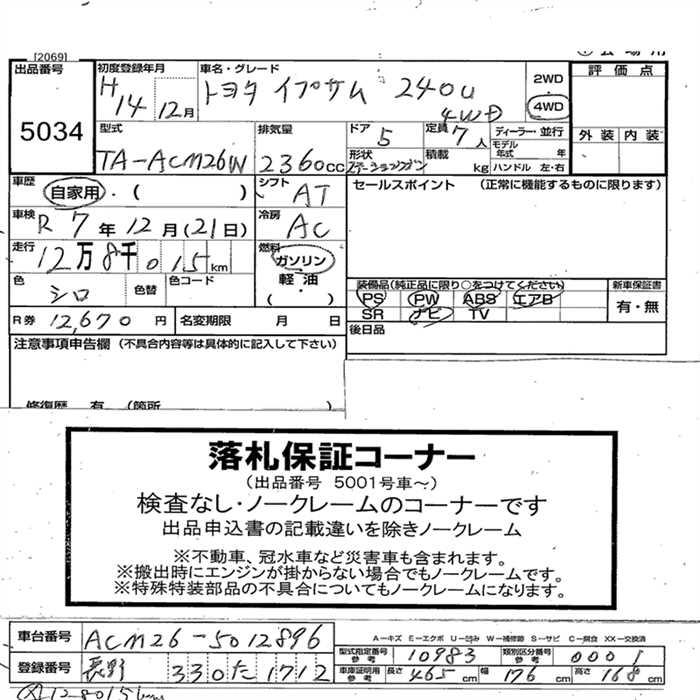 [2069]
出品番号 5034
初度登録年月 H14 12月
車名・グレード トヨタ イプサム 240u 4WD
2WD
4WD
評価点
外装 内装
型式 TA-ACM26W
排気量 2360cc
ドア 5
定員 7人
形状
積載 kg
ディーラー・並行
モデル年式 年
ハンドル 左・右
車歴 自家用・( )
シフト AT
車検 R7年12月(21日)
冷房 AC
走行 12万8千015km
燃料 ガソリン 軽油・( )
色 シロ
色替
色コード
R券 12,670円
名変期限 月 日
セールスポイント (正常に機能するものに限ります)
装備品(純正品に限り○をつけてください)
PS PW ABS エアB
SR ナビ TV
新車保証書 有・無
後日品
注意事項申告欄(不具合内容等は具体的に記入して下さい)
修復歴 有 (箇所
落札保証コーナー
(出品番号 5001号車~)
検査なし・ノークレームのコーナーです
出品申込書の記載違いを除きノークレーム
※不動車、冠水車など災害車も含まれます。
※搬出時にエンジンが掛からない場合でもノークレームです。
※特殊特装部品の不具合についてもノークレームになります。
車台番号 ACM26-5012896
登録番号 長野 330た1712
A-キズ E-エクボ U-凹み W-補修跡 S-サビ C-腐食 XX-交換済
型式指定番号 参考 10983
類別区分番号 参考 0001
車庫証明用 参考 長さ 465cm 幅 176cm 高さ 168cm